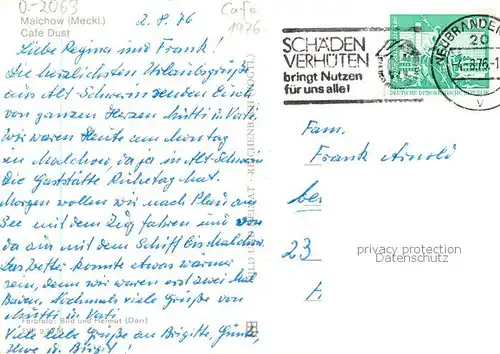 0-2063
Malchow (Meckl.)
Cafe Dust
2.8.76
Cafe
1976
Liebe Regina und Frank!
Die herzlichsten Urlaubsgrüße
aus Alt-Schwerin senden Euch
von ganzen Herzen Mutti u. Vati.
Wir waren Heute am Montag
in Malchow, da ja in Alt-Schwerin
Die Gaststätte Ruhetag hat.
Morgen wollen wir nach Plau am
See mit dem Zug fahren und von
da aus mit dem Schiff bis Malchow.
Das Wetter konnte etwas wärmer
sein, denn wir waren erst zwei Mal
Baden. Nochmals viele Grüße von
Mutti u. Vati
Viele liebe Grüße an Brigitte, Günter,
Uwe u. Birgit!
Farbfoto: Bild und Heimat (Darr)
BILD UND HEIMAT REICHENBACH (VOGTL)
SCHÄDEN
VERHÜTEN
bringt Nutzen
für uns alle!
DEUTSCHE DEMOKRATISCHE REPUBLIK
NEUBRANDEN
20
-4.-8.76-1
v
Fam.
Frank Arnold
be
23
privacy protection
@VereraCards